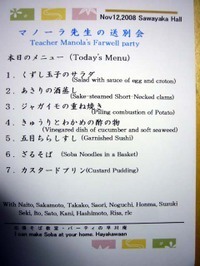 Nov12,2008 Sawayaka Hall
マノーラ先生の送別会
Teacher Manoda's Farwell party
本日のメニュー (Today's Menu)
1. くずし玉子のサラダ
(Salad with sauce of egg and croton)
2. あさりの酒蒸し
(Sake-steamed Short-Necked clams)
3. ジャガイモの重ね焼き
(Piling combustion of Potato)
4. きゅうりとわかめの酢の物
(Vinegared dish of cucumber and soft seaweed)
5. 五目ちらしすし (Garnished Sushi)
6. ざるそば (Soba Noodles in a Basket)
7. カスタードプリン(Custard Pudding)
With Naito, Sakamoto, Takako, Saori, Noguchi, Honma, Suzuki
Seki, Ito, Sato, Kani, Hashimoto, Risa, rlc
I can make Soba at your home. Hayakawaan